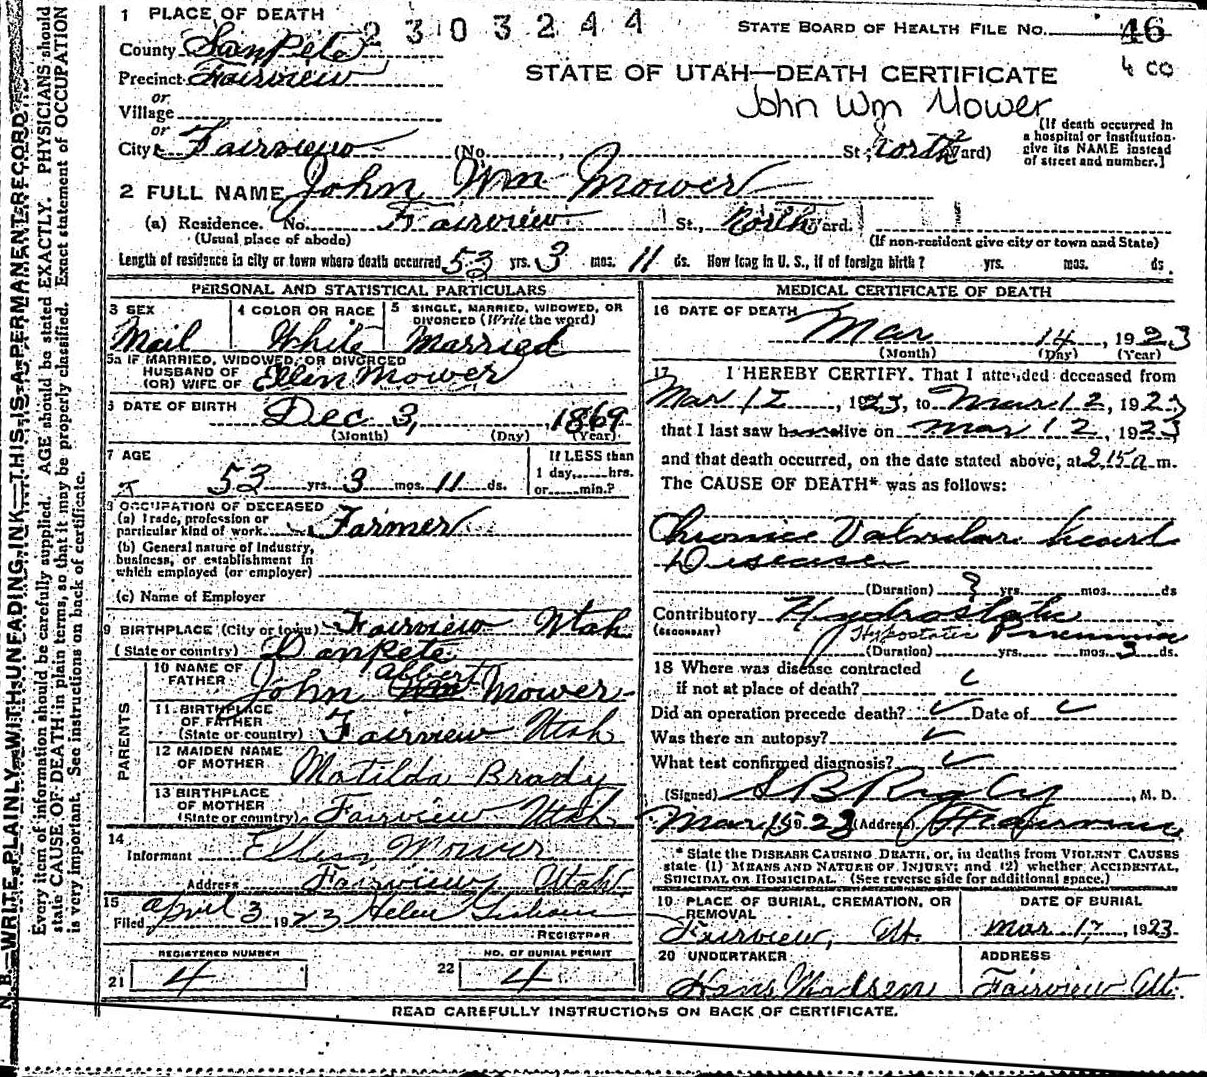 1 PLACE OF DEATH
2303244
STATE BOARD OF HEALTH FILE No. 46
County SanPete
4 CO
Precinct Fairview
STATE OF UTAH—DEATH CERTIFICATE
or
John Wm Mower
Village
or
City Fairview (No. , St; North Ward)
[If death occurred in a hospital or institution give its NAME instead of street and number.]
2 FULL NAME John Wm Mower
(a) Residence. No. Fairview St., North Ward.
(Usual place of abode)
(If non-resident give city or town and State)
Length of residence in city or town where death occurred 53 yrs. 3 mos. 11 ds. How long in U. S., if of foreign birth? yrs. mos. ds.
PERSONAL AND STATISTICAL PARTICULARS
3 SEX
Mail
4 COLOR OR RACE
White
5 SINGLE, MARRIED, WIDOWED, OR DIVORCED (Write the word)
Married
5a IF MARRIED, WIDOWED, OR DIVORCED
HUSBAND OF
(OR) WIFE OF Ellen Mower
6 DATE OF BIRTH Dec 3, 1869
(Month) (Day) (Year)
7 AGE
53 yrs. 3 mos. 11 ds.
If LESS than
1 day, hrs.
or min.?
8 OCCUPATION OF DECEASED
(a) Trade, profession or
particular kind of work Farmer
(b) General nature of Industry,
business, or establishment in
which employed (or employer)
(c) Name of Employer
9 BIRTHPLACE (City or town) Fairview Utah
(State or country) SanPete
PARENTS
10 NAME OF
FATHER John Albert Wm Mower
11 BIRTHPLACE
OF FATHER
(State or country) Fairview Utah
12 MAIDEN NAME
OF MOTHER Matilda Brady
13 BIRTHPLACE
OF MOTHER
(State or country) Fairview Utah
14
Informant Ellen Mower
Address Fairview, Utah
15
Filed April 3 1923 Helen
REGISTRAR
REGISTERED NUMBER
21 4
NO. OF BURIAL PERMIT
22 4
MEDICAL CERTIFICATE OF DEATH
16 DATE OF DEATH
Mar 14, 1923
(Month) (Day) (Year)
17 I HEREBY CERTIFY. That I attended deceased from
Mar 12, 1923, to Mar 12, 1923
that I last saw h alive on Mar 12, 1923
and that death occurred, on the date stated above, at 2.15 a m.
The CAUSE OF DEATH* was as follows:
Chronice Valvular heart
Disease
(Duration) ? yrs. mos. ds
Contributory Hydrostatic
(SECONDARY) Hypostatic Pneumonia
(Duration) yrs. mos. 3 ds.
18 Where was disease contracted
if not at place of death?
Did an operation precede death? Date of
Was there an autopsy?
What test confirmed diagnosis?
(Signed) S B Rigby, M. D.
Mar 15 1923 (Address) Fairview
* State the DISEASE CAUSING DEATH, or, in deaths from VIOLENT CAUSES
state (1) MEANS AND NATURE OF INJURY; and (2) whether ACCIDENTAL,
SUICIDAL OR HOMICIDAL. (See reverse side for additional space.)
19 PLACE OF BURIAL, CREMATION, OR
REMOVAL
Fairview, Ut.
DATE OF BURIAL
Mar 17, 1923
20 UNDERTAKER
Hans Madsen
ADDRESS
Fairview Ut.
READ CAREFULLY INSTRUCTIONS ON BACK OF CERTIFICATE.
N. B.—WRITE PLAINLY WITH UNFADING INK—THIS IS A PERMANENT RECORD
Every item of information should be carefully supplied. AGE should be stated EXACTLY. PHYSICIANS should
state CAUSE OF DEATH in plain terms, so that it may be properly classified. Exact statement of OCCUPATION
is very important. See instructions on back of certificate.